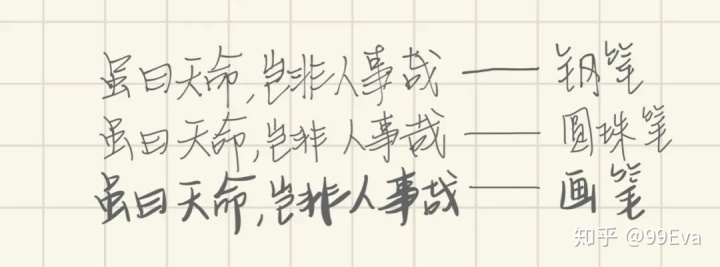 虽曰天命,岂非人事哉——钢笔
虽曰天命,岂非人事哉——圆珠笔
虽曰天命,岂非人事哉——画笔
知乎 @99Eva